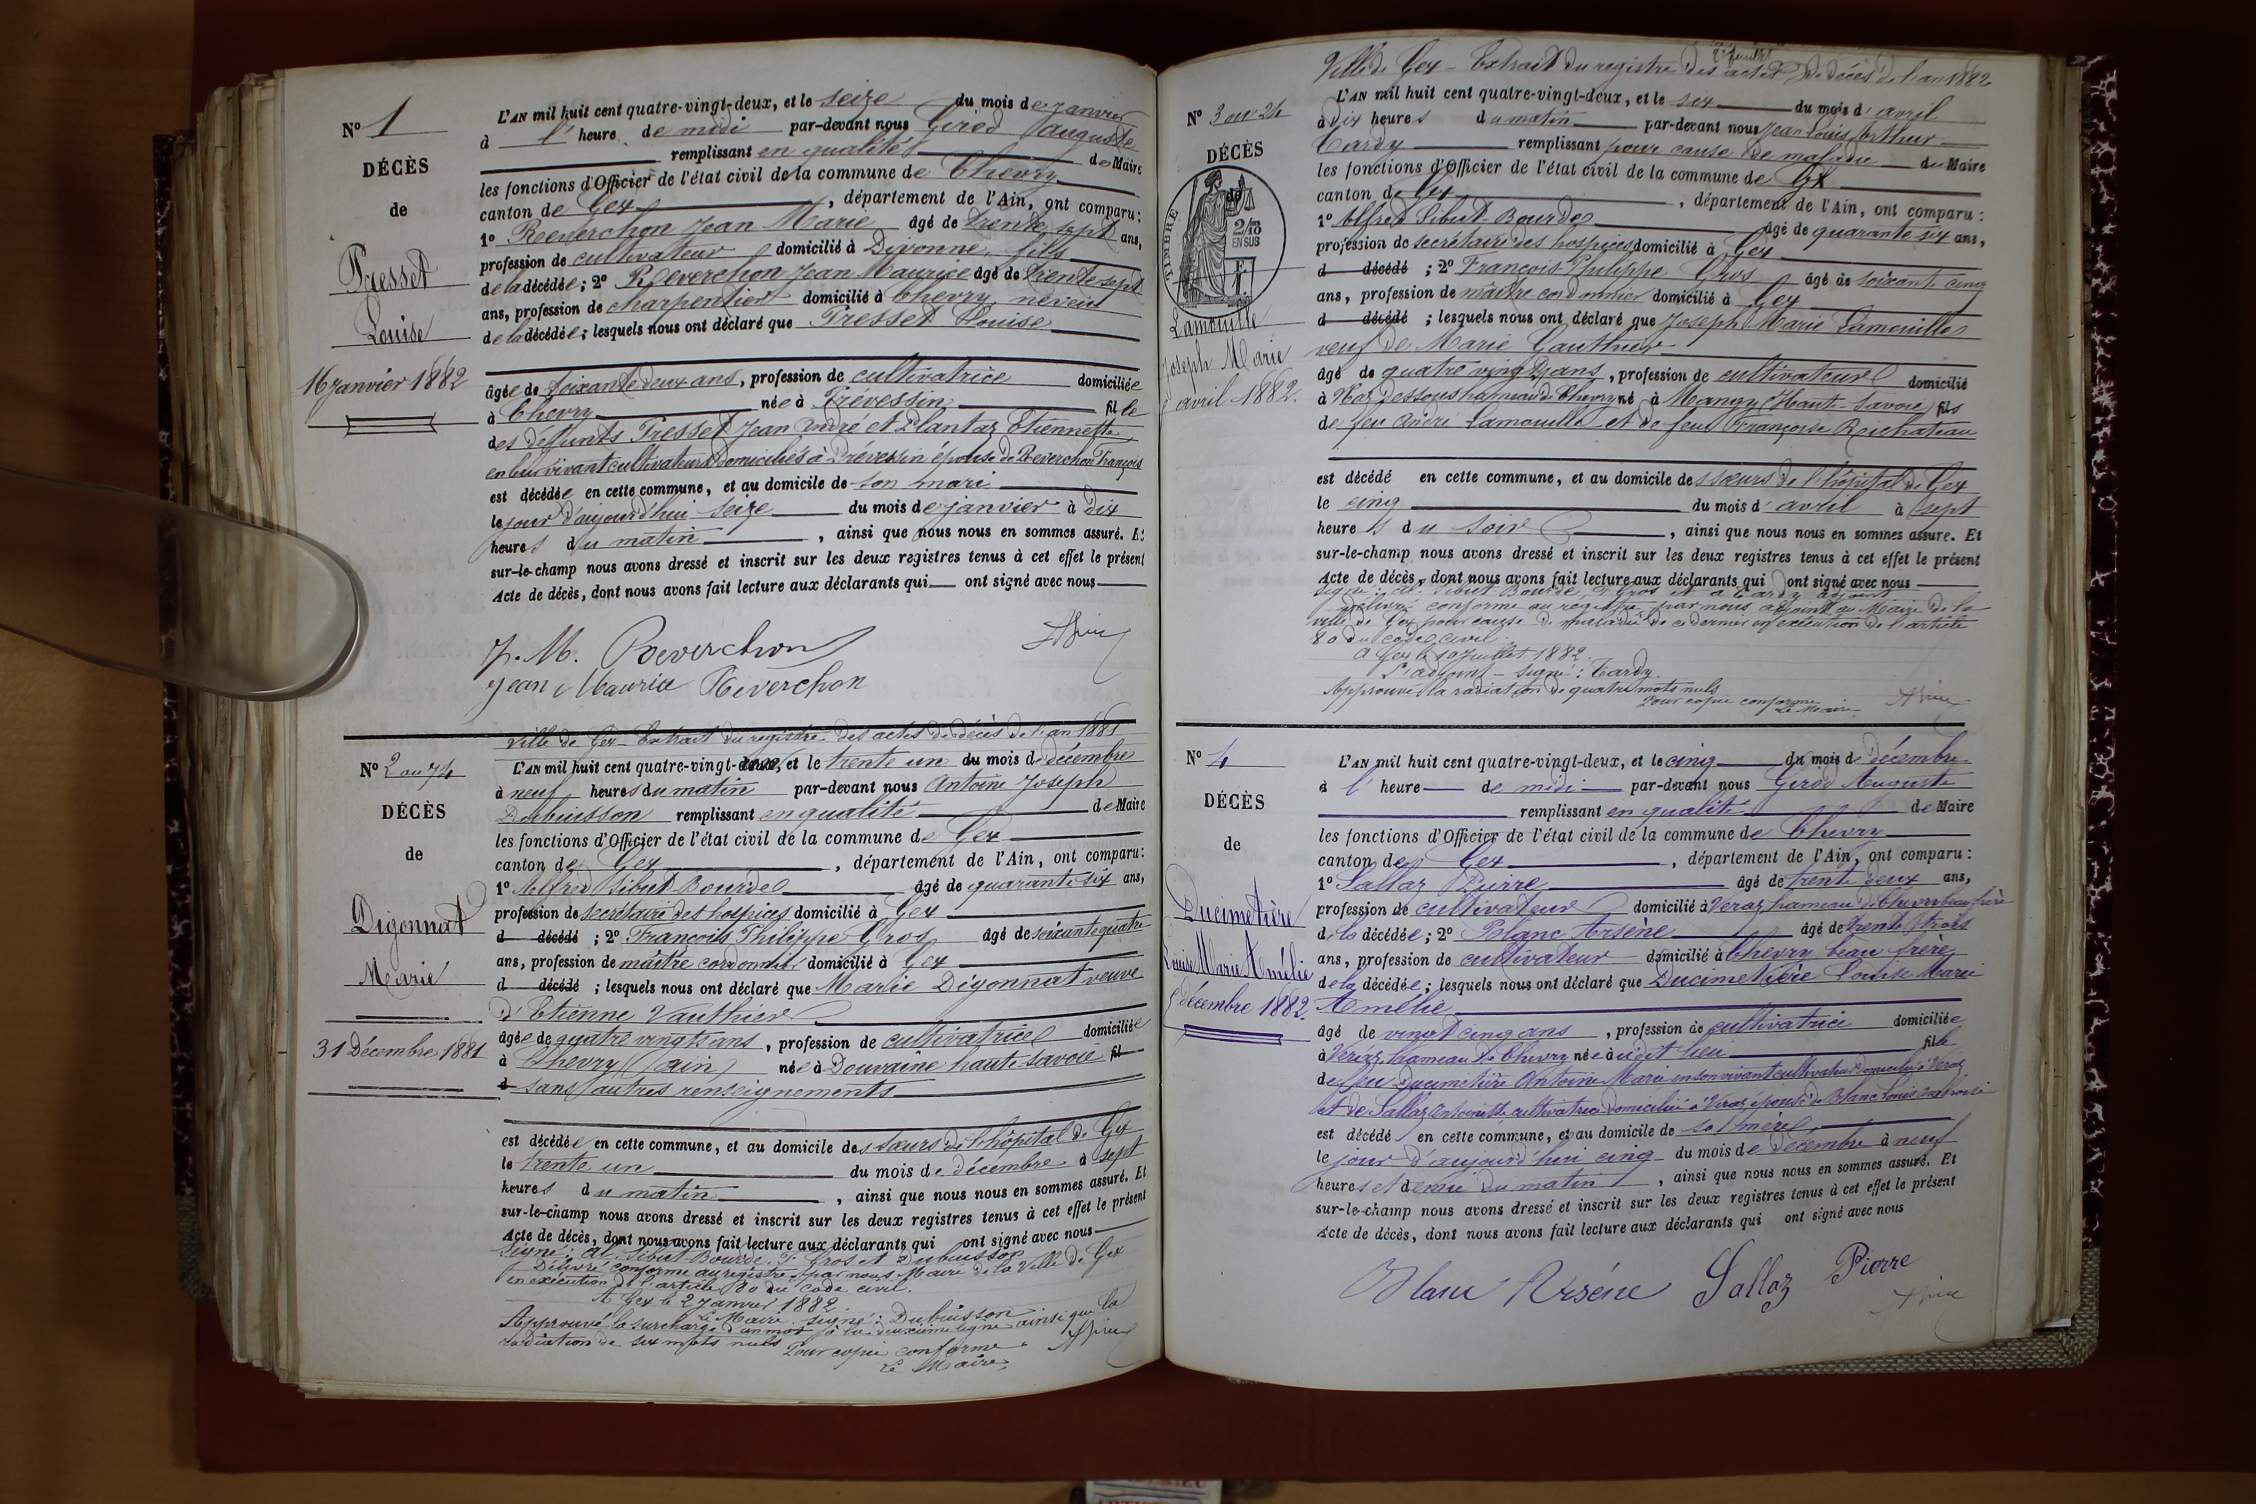 N° 1
DÉCÈS
de
Presset
Louise
16 janvier 1882
L'AN mil huit cent quatre-vingt-deux, et le seize du mois de janvier
à l' heure de midi par-devant nous Girod auguste
remplissant en qualité de Maire
les fonctions d'Officier de l'état civil de la commune de Chevry
canton de Gex, département de l'Ain, ont comparu:
1° Reverchon Jean Marie âgé de trente sept ans,
profession de cultivateur domicilié à Divonne, fils
de la décédée; 2° Reverchon Jean Maurice âgé de trente sept
ans, profession de charpentier domicilié à Chevry, neveu
de la décédée; lesquels nous ont déclaré que Presset Louise
âgée de soixante deux ans, profession de cultivatrice domiciliée
à Chevry née à Prévessin fille
des défunts Presset Jean André et Plantaz Etiennette
en leur vivant cultivateurs domiciliés à Prévessin épouse de Reverchon François
est décédée en cette commune, et au domicile de son mari
le jour d'aujourd'hui seize du mois de janvier à dix
heures du matin, ainsi que nous nous en sommes assuré. Et
sur-le-champ nous avons dressé et inscrit sur les deux registres tenus à cet effet le présent
Acte de décès, dont nous avons fait lecture aux déclarants qui ont signé avec nous
J. M. Reverchon
Jean Maurice Reverchon
Ville de Gex - Extrait du registre des actes de décès de l'an 1881
N° 2 ou 74
DÉCÈS
de
Digonnat
Marie
31 Décembre 1881
L'AN mil huit cent quatre-vingt-deux, et le trente un du mois de décembre
à neuf heures du matin par-devant nous Antoine Joseph
Dubuisson remplissant en qualité de Maire
les fonctions d'Officier de l'état civil de la commune de Gex
canton de Gex, département de l'Ain, ont comparu:
1° Alfred Sibut-Bourde âgé de quarante six ans,
profession de secrétaire des hospices domicilié à Gex
d décédé; 2° François Philippe Gros âgé de soixante quatre
ans, profession de maître cordonnier domicilié à Gex
d décédé; lesquels nous ont déclaré que Marie Digonnat veuve
d'Etienne Vauthier
âgée de quatre vingts ans, profession de cultivatrice domiciliée
à Chevry (ain) née à Douvaine haute-savoie fil
d sans autres renseignements
est décédée en cette commune, et au domicile des sœurs de l'hôpital de Gex
le trente un du mois de décembre à sept
heures du matin, ainsi que nous nous en sommes assuré. Et
sur-le-champ nous avons dressé et inscrit sur les deux registres tenus à cet effet le présent
Acte de décès, dont nous avons fait lecture aux déclarants qui ont signé avec nous
signé: al. Sibut Bourde, F. Gros et Dubuisson
Délivré conforme au registre par nous Maire de la Ville de Gex
en exécution de l'article 80 du code civil.
A Gex le 2 janvier 1882.
Le Maire signé: Dubuisson
Approuvé la surcharge d'un mot à la deuxième ligne ainsi que la
radiation de six mots nuls
Pour copie conforme
Le Maire,
Ville de Gex - Extrait du registre des actes de décès de l'an 1882
N° 3 ou 24
DÉCÈS
de
TIMBRE
2/10
EN SUS
1 F.
Lamouille
Joseph Marie
avril 1882.
L'AN mil huit cent quatre-vingt-deux, et le six du mois d'avril
à dix heures du matin par-devant nous Jean Louis Arthur
Tardy remplissant pour cause de maladie du Maire
les fonctions d'Officier de l'état civil de la commune de Gex
canton de Gex, département de l'Ain, ont comparu:
1° Alfred Sibut-Bourde âgé de quarante six ans,
profession de secrétaire des hospices domicilié à Gex
d décédé; 2° François Philippe Gros âgé de soixante cinq
ans, profession de maître cordonnier domicilié à Gex
d décédé; lesquels nous ont déclaré que Joseph Marie Lamouille
veuf de Marie Gauthier
âgé de quatre vingts ans, profession de cultivateur domicilié
à Naz dessous hameau de Chevry né à (Haute-Savoie) fils
de feu André Lamouille et de feue Françoise
est décédé en cette commune, et au domicile des sœurs de l'hôpital de Gex
le cinq du mois d'avril à sept
heures du soir, ainsi que nous nous en sommes assuré. Et
sur-le-champ nous avons dressé et inscrit sur les deux registres tenus à cet effet le présent
Acte de décès, dont nous avons fait lecture aux déclarants qui ont signé avec nous
signé: al. Sibut Bourde, F. Gros et a Tardy adjoint
Délivré conforme au registre par nous adjoint au Maire de la
ville de Gex pour cause de maladie de ce dernier en exécution de l'article
80 du code civil.
A Gex le 10 juillet 1882.
L'adjoint - signé: Tardy.
Approuvé la radiation de quatre mots nuls
Pour copie conforme
Le Maire
N° 4
DÉCÈS
de
Ducimetière
Louise Marie Amélie
5 décembre 1882.
L'AN mil huit cent quatre-vingt-deux, et le cinq du mois de décembre
à l' heure de midi par-devant nous Girod Auguste
remplissant en qualité de Maire
les fonctions d'Officier de l'état civil de la commune de Chevry
canton de Gex, département de l'Ain, ont comparu:
1° Sallaz Pierre âgé de trente deux ans,
profession de cultivateur domicilié à Véraz hameau de Chevry beau frère
de la décédée; 2° Blanc Arsène âgé de trente trois
ans, profession de cultivateur domicilié à Chevry beau frère
de la décédée; lesquels nous ont déclaré que Ducimetière Louise Marie
Amélie
âgé de vingt cinq ans, profession de cultivatrice domiciliée
à Véraz hameau de Chevry née à dit lieu fille
de feu Ducimetière Antoine Marie en son vivant cultivateur domicilié à Véraz
et de Sallaz Antoinette cultivatrice domiciliée à Véraz épouse de Blanc Louis
est décédé en cette commune, et au domicile de sa mère
le jour d'aujourd'hui cinq du mois de décembre à neuf
heures et demie du matin, ainsi que nous nous en sommes assuré. Et
sur-le-champ nous avons dressé et inscrit sur les deux registres tenus à cet effet le présent
Acte de décès, dont nous avons fait lecture aux déclarants qui ont signé avec nous
Blanc Arsène Sallaz Pierre